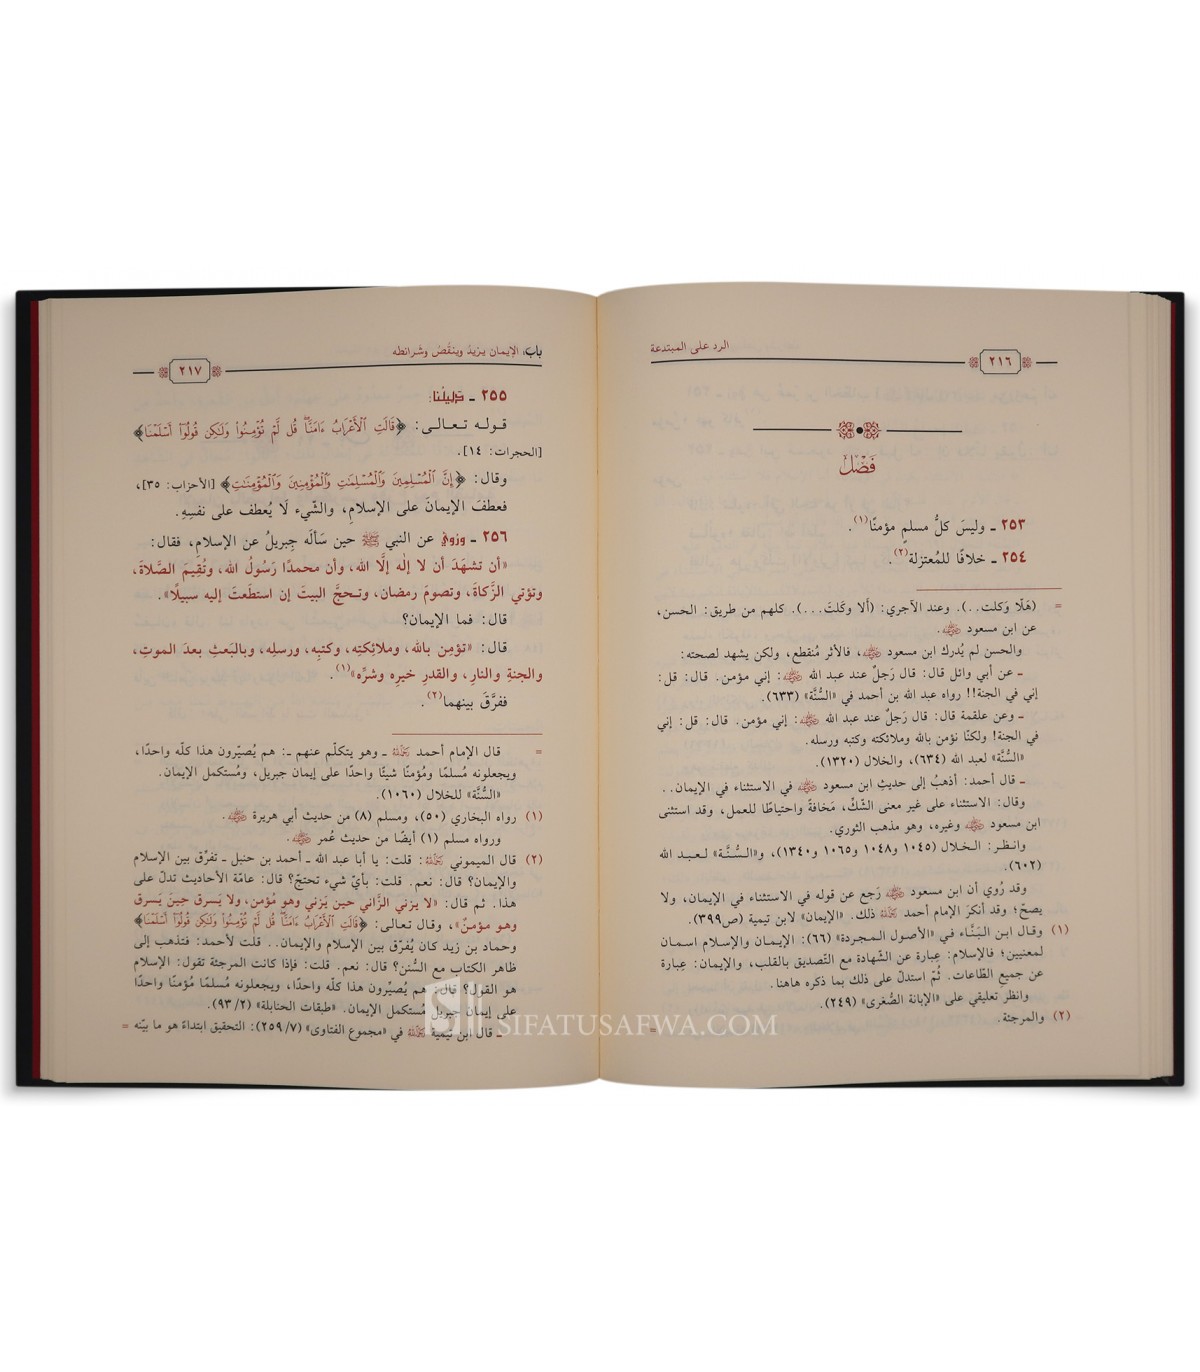 الرد على المبتدعة
٢١٦
فَصْلٌ
٢٥٣ ـ وليسَ كلُّ مسلمٍ مؤمنًا(١).
٢٥٤ ـ خلافًا للمُعتزلة(٢).
= (هَلَّا وَكلت..). وعند الآجري: (ألا وكَلتَ...). كلهم من طريق: الحسن،
عن ابن مسعود رضي الله عنه.
والحسن لم يُدرك ابن مسعود رضي الله عنه، فالأثر مُنقطع، ولكن يشهد لصحته:
ـ عن أبي وائل قال: قال رَجلٌ عند عبد الله رضي الله عنه: إني مؤمن. قال: قل:
إني في الجنة!! رواه عبد الله بن أحمد في «السُّنَّة» (٦٣٣).
ـ وعن علقمة قال: قال رَجلٌ عند عبد الله رضي الله عنه: إني مؤمن. قال: قل: إني
في الجنة! ولكنّا نؤمن بالله وملائكته وكتبه ورسله.
«السُّنَّة» لعبد الله (٦٣٤)، والخلال (١٣٢٠).
ـ قال أحمد: أذهبُ إلى حديثِ ابن مسعود رضي الله عنه في الاستثناء في الإيمان..
وقال: الاستثناء على غير معنى الشّكِّ، مَخافةً واحتياطًا للعمل، وقد استثنى
ابن مسعود رضي الله عنه وغيره، وهو مذهب الثوري.
وانظر: الخلال (١٠٤٥ و١٠٤٨ و١٠٦٥ و١٣٤٠)، و«السُّنَّة» لعبد الله
(٦٠٢).
وقد رُوي أن ابن مسعود رضي الله عنه رَجع عن قوله في الاستثناء في الإيمان، ولا
يصحّ؛ وقد أنكرَ الإمام أحمد رحمه الله ذلك. «الإيمان» لابن تيمية (ص٣٩٩).
(١) وقال ابن البَنَّاء في «الأصول المجردة» (٦٦): الإيمان والإسلام اسمان
لمعنيين؛ فالإسلام: عِبارة عن الشّهادة مع التّصديق بالقلب، والإيمان: عِبارة
عن جميعِ الطّاعات. ثُمّ استدلّ على ذلك بما ذكره هاهنا.
وانظر تعليقي على «الإبانة الصُّغرى» (٢٤٩).
(٢) والمرجئة.
=
بابٌ: الإيمان يزيدُ وينقُصُ وشرائطه
٢١٧
٢٥٥ ـ دَليلُنا:
قوله تعالى: ﴿قَالَتِ ٱلۡأَعۡرَابُ ءَامَنَّاۖ قُل لَّمۡ تُؤۡمِنُواْ وَلَٰكِن قُولُوٓاْ أَسۡلَمۡنَا﴾
[الحجرات: ١٤].
وقال: ﴿إِنَّ ٱلۡمُسۡلِمِينَ وَٱلۡمُسۡلِمَٰتِ وَٱلۡمُؤۡمِنِينَ وَٱلۡمُؤۡمِنَٰتِ﴾ [الأحزاب: ٣٥]،
فعطفَ الإيمانَ على الإسلامِ، والشّيء لَا يُعطف على نفسِهِ.
٢٥٦ ـ ورُويَ عن النبي ﷺ حين سَألَه جِبريلُ عن الإسلامِ، فقال:
«أن تشهَدَ أن لا إله إلَّا الله، وأن محمدًا رَسُولُ الله، وتُقِيمَ الصَّلاةَ،
وتؤتي الزَّكاةَ، وتصومَ رمضان، وتحجَّ البيتَ إن استطَعتَ إليه سبيلًا».
قال: فما الإيمان؟
قال: «تؤمِن بالله، وملائكتِه، وكتبِه، ورسلِه، وبالبَعثِ بعدَ الموتِ،
والجنةِ والنارِ، والقدرِ خيرِه وشرِّه»(١).
ففرَّقَ بينهما(٢).
= قال الإمام أحمد رحمه الله ـ وهو يتكلّم عنهم ـ: هم يُصيّرون هذا كلّه واحدًا،
ويجعلونه مُسلمًا ومُؤمنًا شيئًا واحدًا على إيمان جبريل، ومُستكمل الإيمان.
«السُّنَّة» للخلال (١٠٦٠).
(١) رواه البخاري (٥٠)، ومسلم (٨) من حديث أبي هريرة رضي الله عنه.
ورواه مسلم (١) أيضًا من حديث عُمر رضي الله عنه.
(٢) قال الميموني رحمه الله: قلت: يا أبا عبد الله ـ أحمد بن حنبل ـ تفرّق بين الإسلام
والإيمان؟ قال: نعم. قلت: بأيّ شيء تحتجّ؟ قال: عامّة الأحاديث تدلّ على
هذا. ثم قال: «لا يزني الزَّاني حين يَزني وهو مؤمن، ولا يَسرق حِينَ يَسرق
وهو مؤمنٌ»، وقال تعالى: ﴿قَالَتِ ٱلۡأَعۡرَابُ ءَامَنَّاۖ قُل لَّمۡ تُؤۡمِنُواْ وَلَٰكِن قُولُوٓاْ أَسۡلَمۡنَا﴾
وحماد بن زيد كان يُفرّق بين الإسلام والإيمان.. قلت لأحمد: فتذهب إلى
ظاهر الكتاب مع السُّنن؟ قال: نعم. قلت: فإذا كانت المرجئة تقول: الإسلام
هو القول؟ قال: هم يُصيِّرون هذا كلّه واحدًا، ويجعلونه مُسلمًا مُؤمنًا واحدًا
على إيمان جبريل مُستكمل الإيمان. «طبقات الحنابلة» (٢/٩٣).
ـ قال ابن تيمية رحمه الله في «مجموع الفتاوى» (٧/٢٥٩): التحقيق ابتداءً هو ما بيّنه =
SIFATUSAFWA.COM